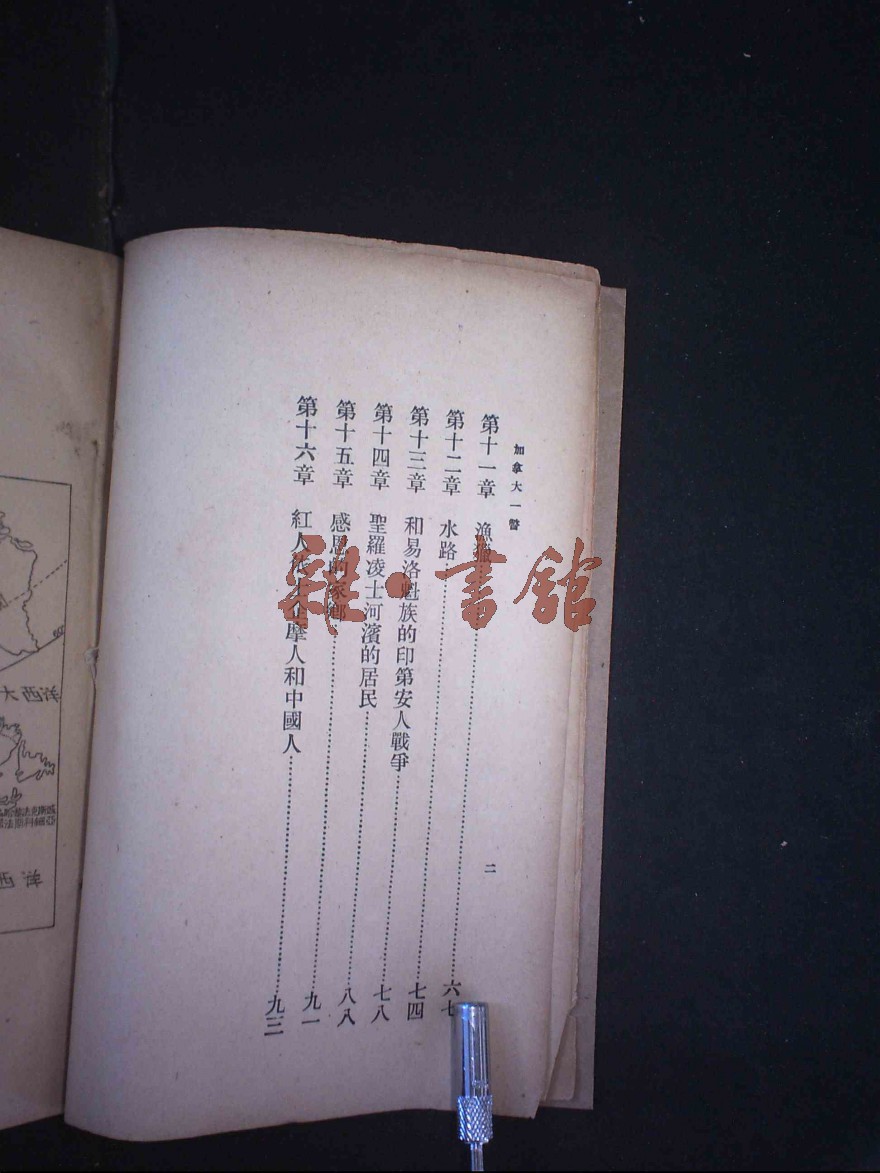 加拿大一瞥
第十一章 漁
六七
第十二章 水路
七四
第十三章 和易洛魁族的印第安人戰爭
七八
第十四章 聖羅凌士河濱的居民
八八
第十五章 感恩的家鄉
九一
第十六章 紅人
摩人和中國人
九三
二
雜·書館
大西洋
西洋